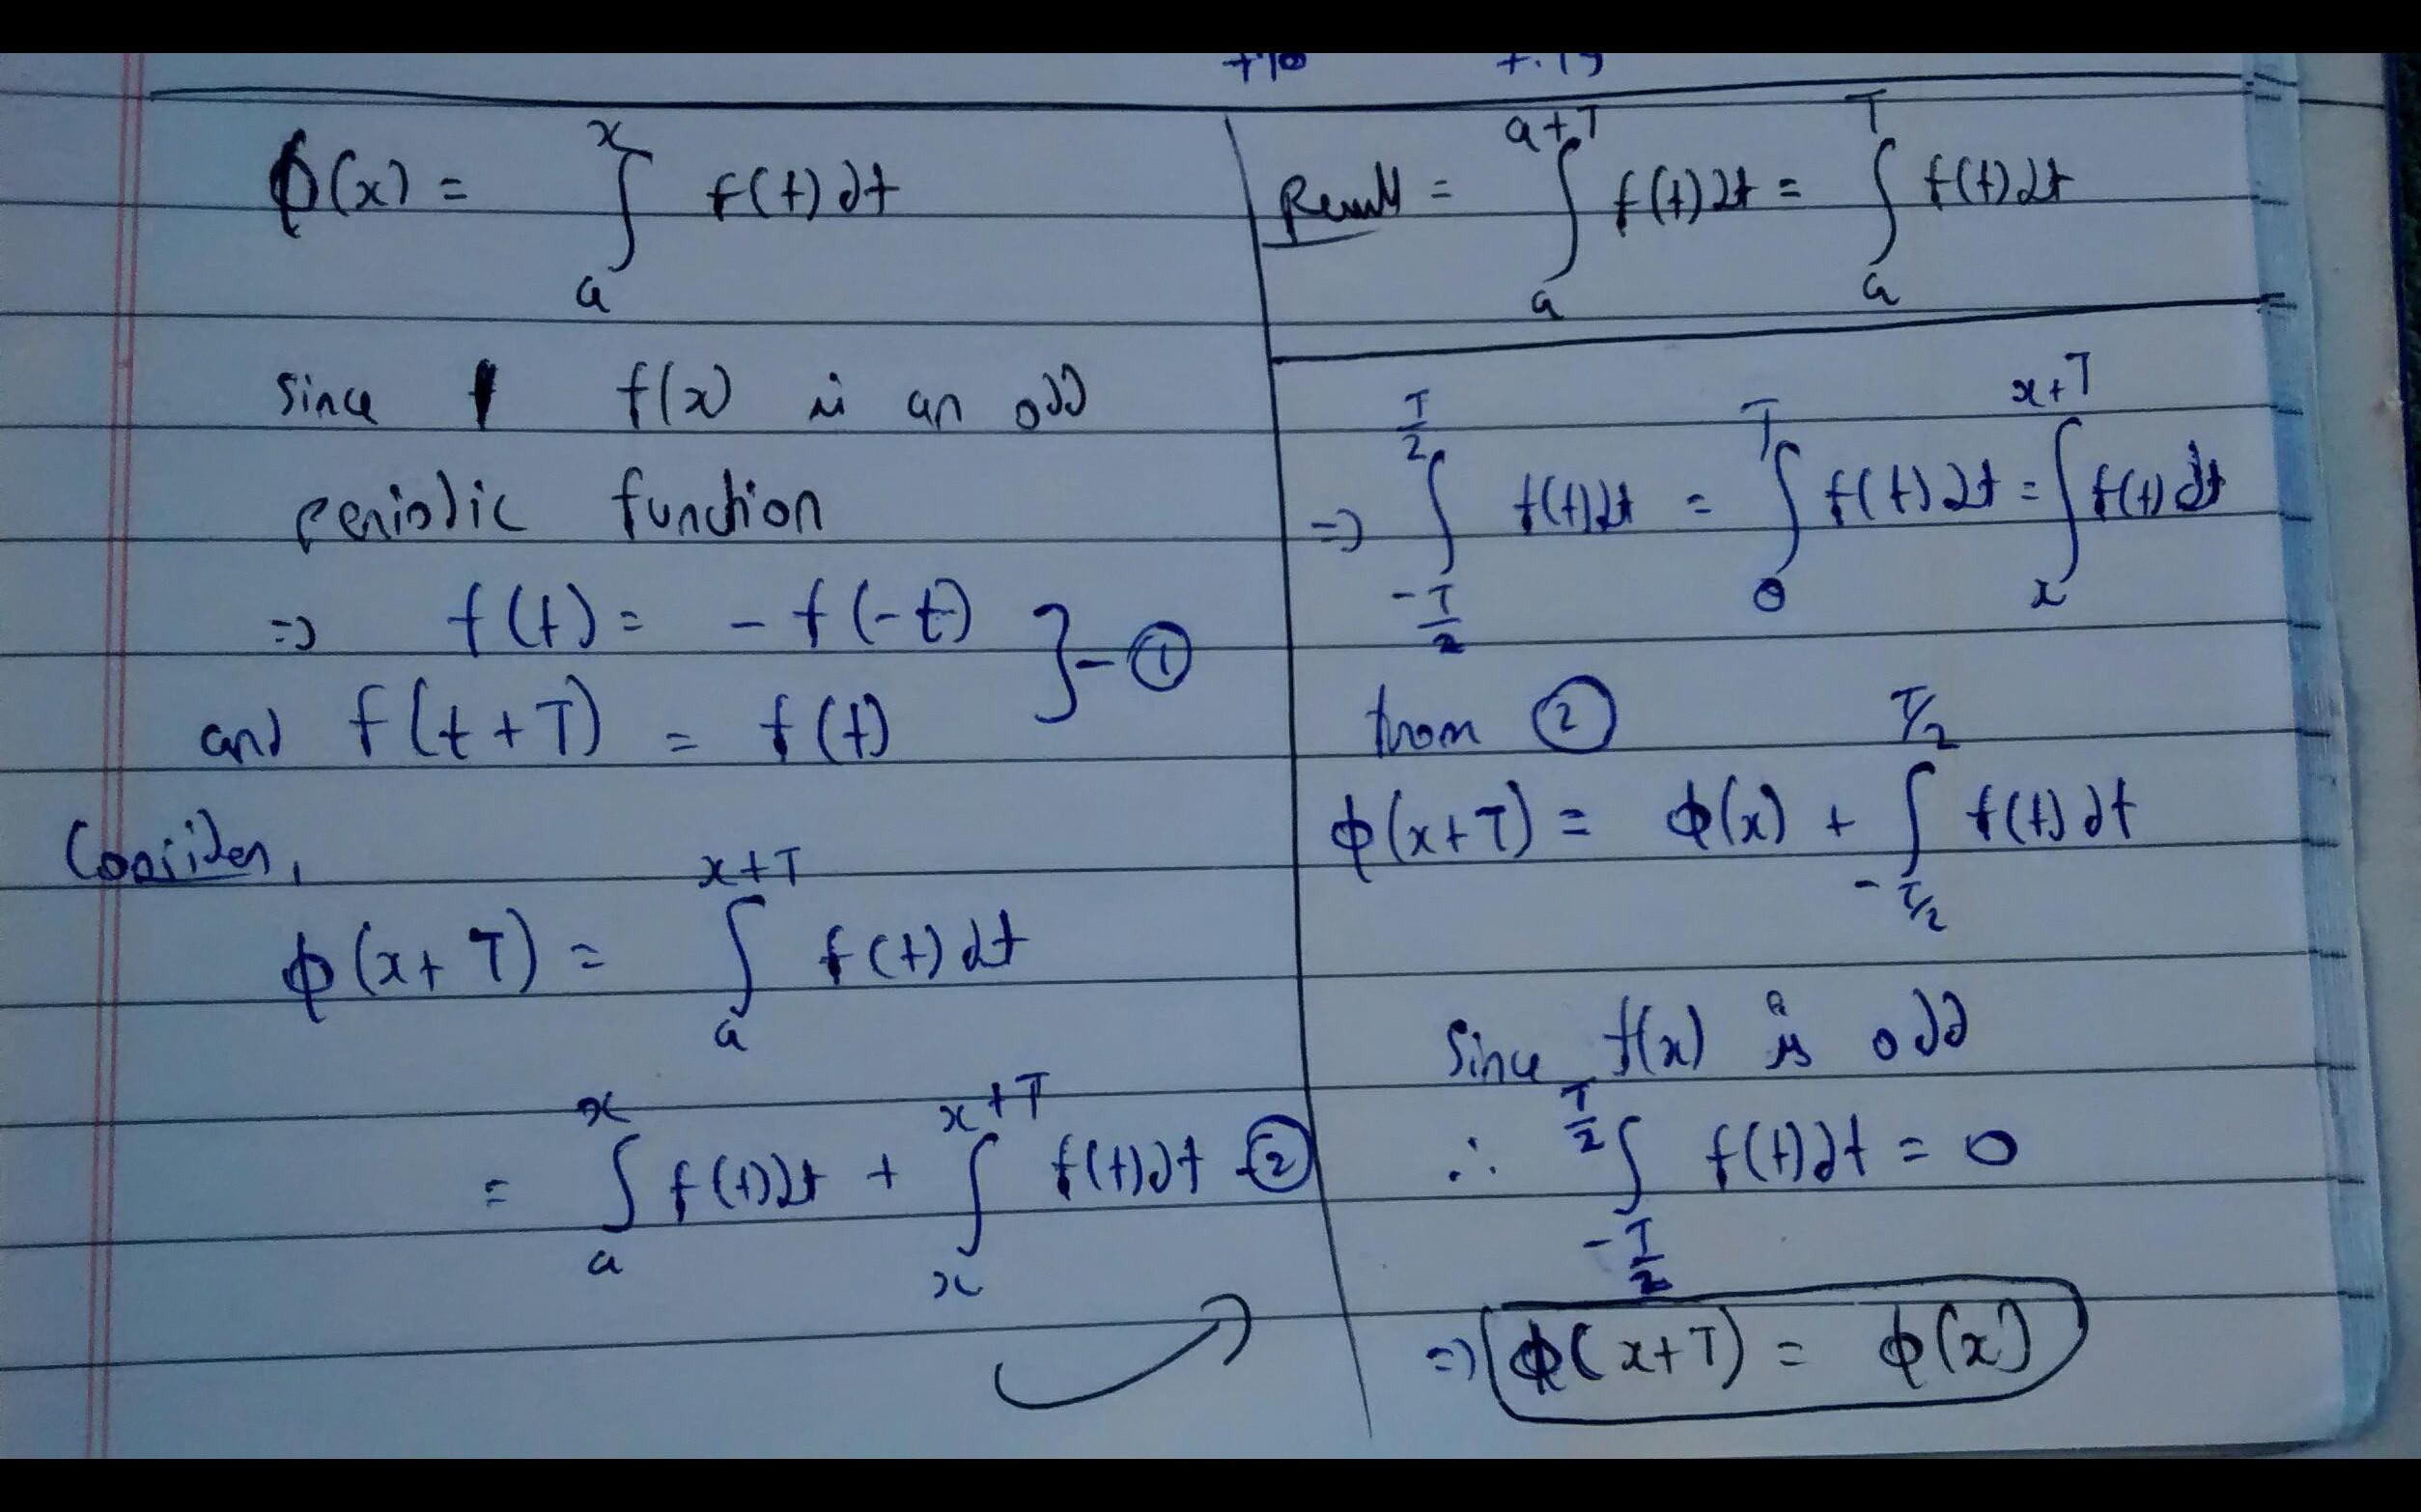 ϕ(x) = ∫_a^x f(t) dt
Since f(x) is an odd
periodic function
=> f(t) = - f(-t)
and f(t+T) = f(t) } - ①
Consider,
ϕ(x+T) = ∫_a^{x+T} f(t) dt
= ∫_a^x f(t) dt + ∫_x^{x+T} f(t) dt - ②
Result = ∫_a^{a+T} f(t) dt = ∫_a^T f(t) dt
=> ∫_{-T/2}^{T/2} f(t) dt = ∫_0^T f(t) dt = ∫_x^{x+T} f(t) dt
from ②
ϕ(x+T) = ϕ(x) + ∫_{-T/2}^{T/2} f(t) dt
Since f(x) is odd
∴ ∫_{-T/2}^{T/2} f(t) dt = 0
=> ϕ(x+T) = ϕ(x)